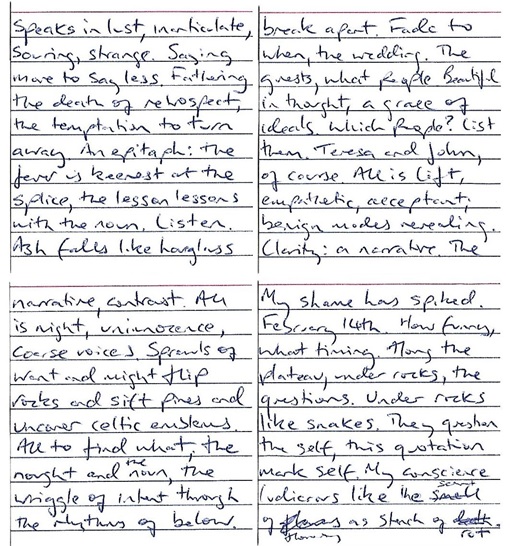 Speaks in lust, inarticulate,
Souring, strange. Saying
more to say less. Fathering
the death of retrospect,
the temptation to turn
away. An epitaph: the
fever is keenest at the
splice, the lesson lessons
with the noun. Listen.
Ash falls like hourglass
break apart. Fade to
when, the wedding. The
guests, what people Beautiful
in thought, a grace of
ideals. Which people? List
them. Teresa and John,
of course. All is lift,
empathetic, acceptant,
benign modes revealing.
Clarity: a narrative. The
narrative, contrast. All
is night, uninnocence,
coarse voices. Sprawls of
want and might flip
rocks and sift pines and
uncover celtic emblems.
All to find what, the
nought and the noun, the
wriggle of intent through
the rhythms of below.
My shame has spiked.
February 14th. How funny,
what timing. Along the
plateau, under rocks, the
questions. Under rocks
like snakes. They question
the self, this quotation
mark self. My conscience
ludicrous like the smell scent
of flowers as stench of death.
flowing rot